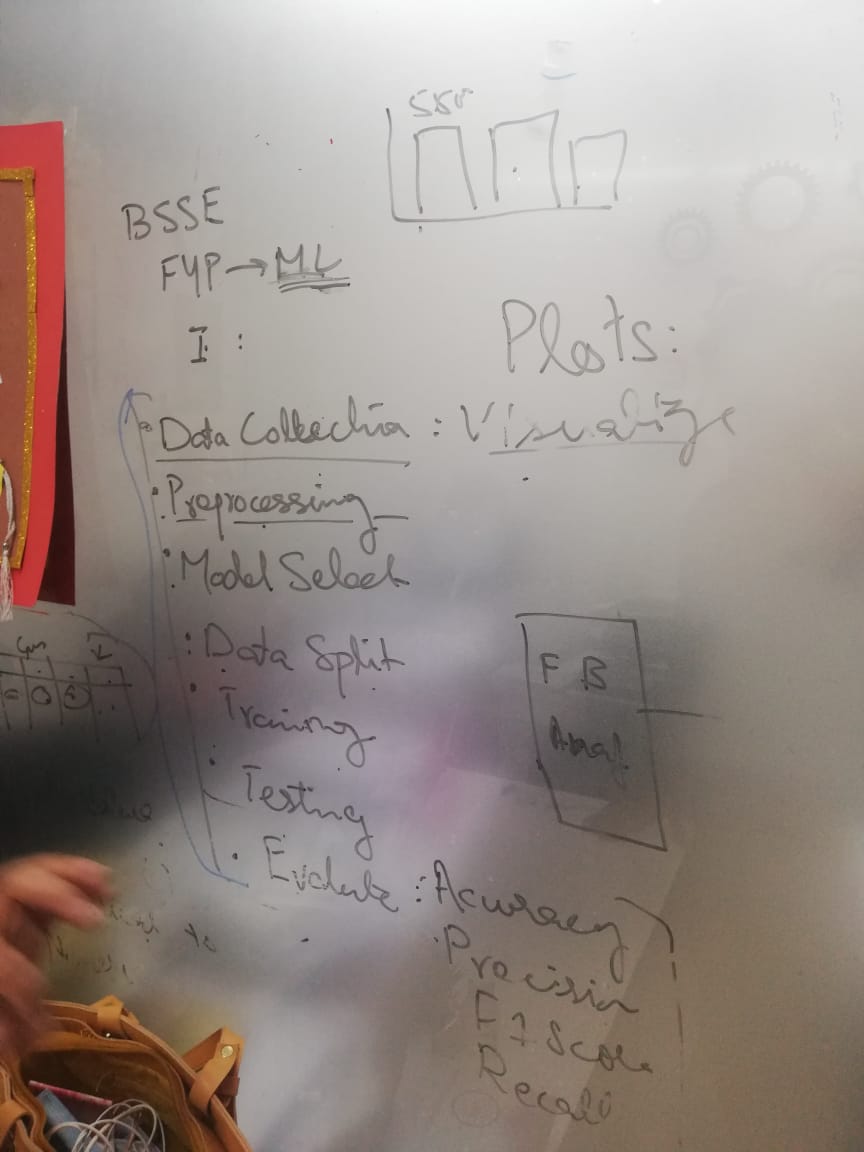 BSSE
FYP → ML
I :
Plots:
Data Collection : Visualize
Preprocessing
Model Select
Data Split
Training
Testing
Evaluate : Acuracy
Precision
F1 Score
Recall
F B